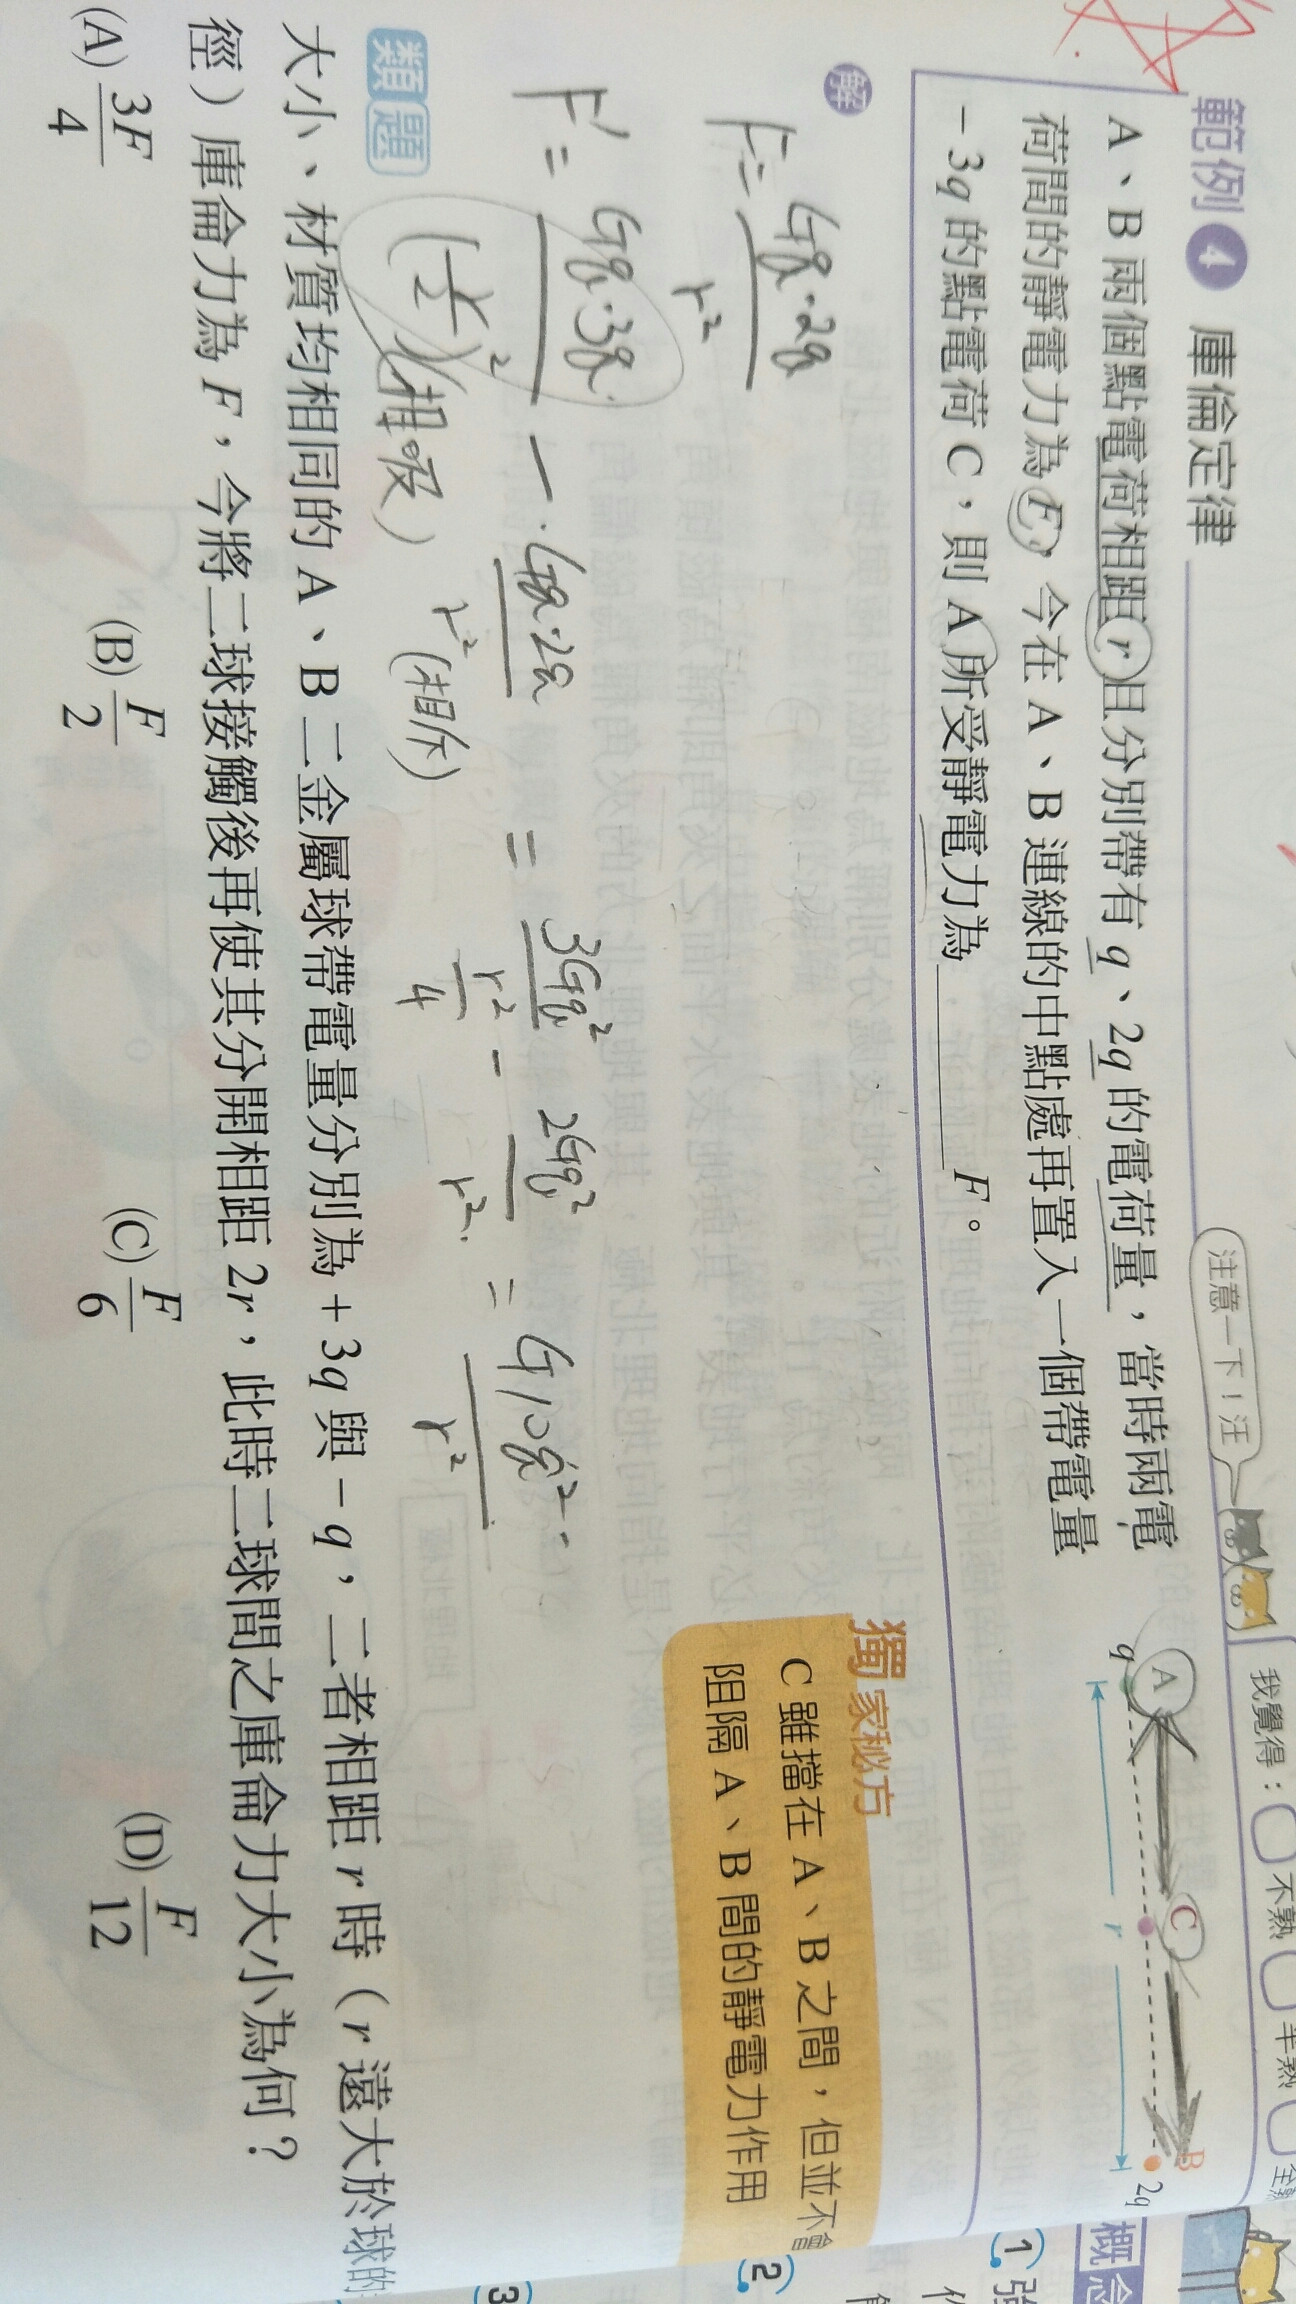 注意一下!汪
我覺得:
不熟
半熟
範例4 庫倫定律
A、B兩個點電荷相距r且分別帶有q、2q的電荷量,當時兩電
荷間的靜電力為F,今在A、B連線的中點處再置入一個帶電量
-3q的點電荷C,則A所受靜電力為____F。
A C B
q 2q
r
解
F=Gq·2q/r²
F'=Gq·3q/(½r)²(相吸)-Gq·2q/r²(相斥)=3Gq²/(r²/4)-2Gq²/r²=G10q²/r²
獨家秘方
C雖擋在A、B之間,但並不會
阻隔A、B間的靜電力作用
類題
大小、材質均相同的A、B二金屬球帶電量分別為+3q與-q,二者相距r時(r遠大於球的
徑)庫侖力為F,今將二球接觸後再使其分開相距2r,此時二球間之庫侖力大小為何?
(A) 3F/4 (B) F/2 (C) F/6 (D) F/12
概念
1
2
3